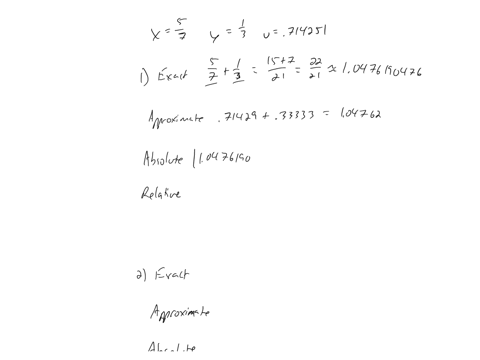 x = 5/7 y = 1/3 u = .714251
1) Exact 5/7 + 1/3 = 15+7/21 = 22/21 ≈ 1.0476190476
Approximate .71429 + .33333 = 1.04762
Absolute |1.0476190
Relative
2) Exact
Approximate
Absolute